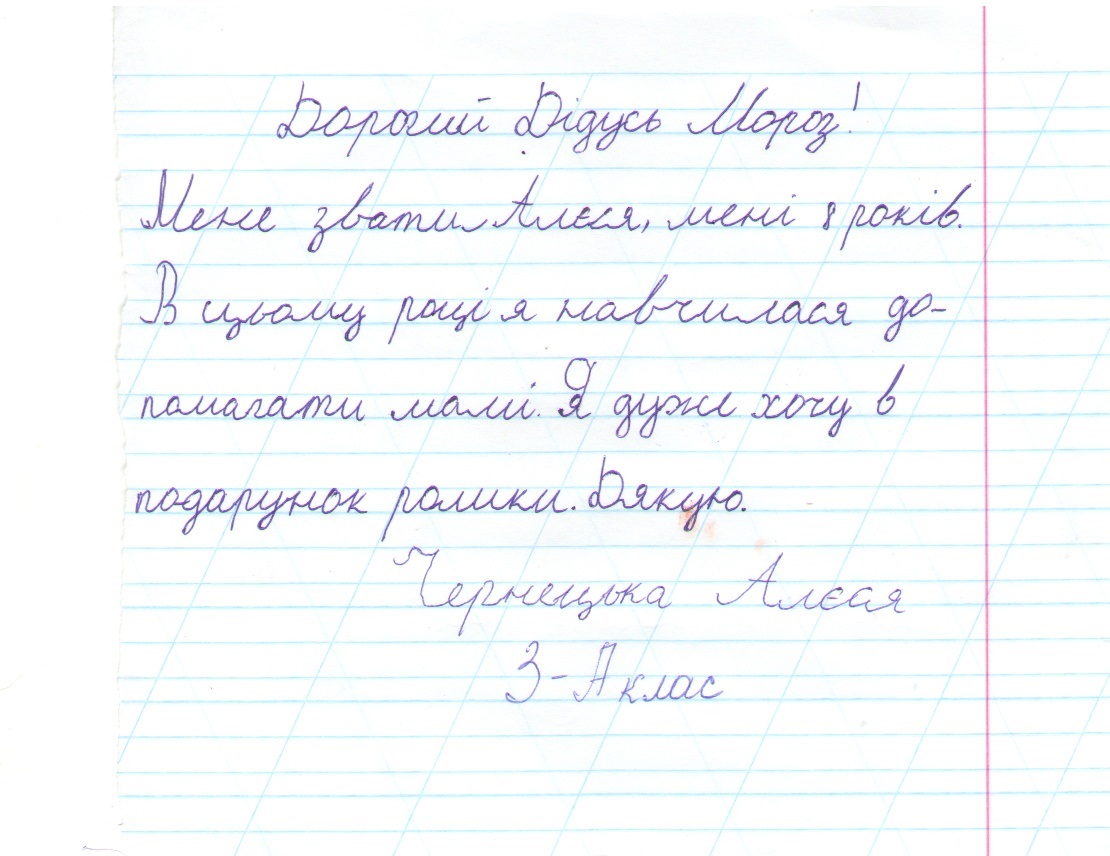 Дорогий Дідусь Мороз!
Мене звати Алєся, мені 8 років.
В цьому році я навчилася до-
помагати мамі. Я дуже хочу в
подарунок ролики. Дякую.
Чернецька Алєся
3-А клас